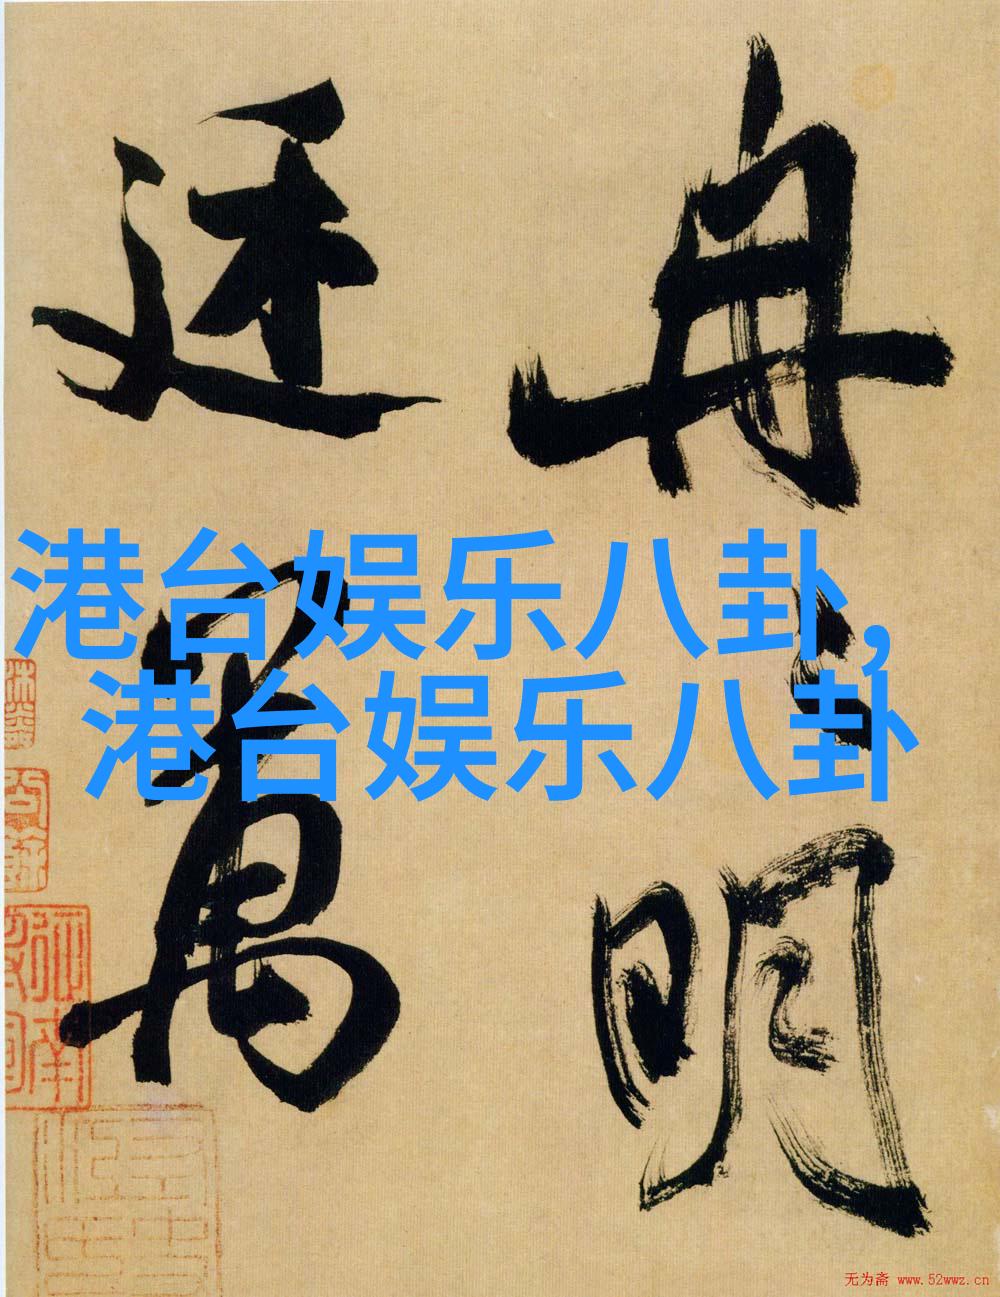 冉々明
廷萬
港台娱乐八卦，
港台娱乐八卦
无为斋 www.52wwz.cn